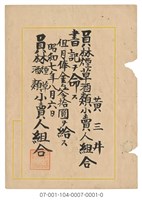 黃三井
員林煙草酒類小賣人組合
書記ヲ命ス
但月俸金參拾圓ヲ給ス
昭和　年八月六日
員林煙草酒類小賣人組合
07-001-104-0007-0001-0